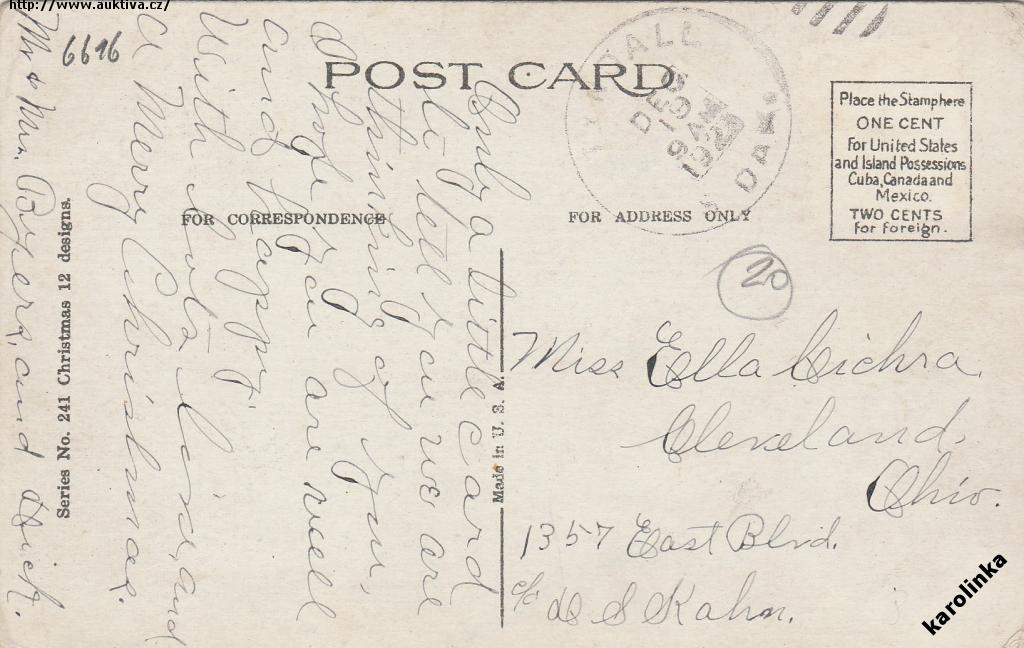 http://www.auktiva.cz/
6616
POST CARD
DEC
1923
DAK.
Place the Stamp here
ONE CENT
For United States
and Island Possessions
Cuba, Canada and
Mexico.
TWO CENTS
for foreign.
FOR CORRESPONDENCE
FOR ADDRESS ONLY
Only a little card
to tell you we are
thinking of you,
hope you are well
and happy.
With lots love, and
a Merry Christmas.
Mr & Mrs. and Dick.
Series No. 241 Christmas 12 designs.
Made in U. S. A.
20
Miss Ella Cichra.
Cleveland,
Ohio.
1357 East Blvd.
c/o S Kahn.
karolinka